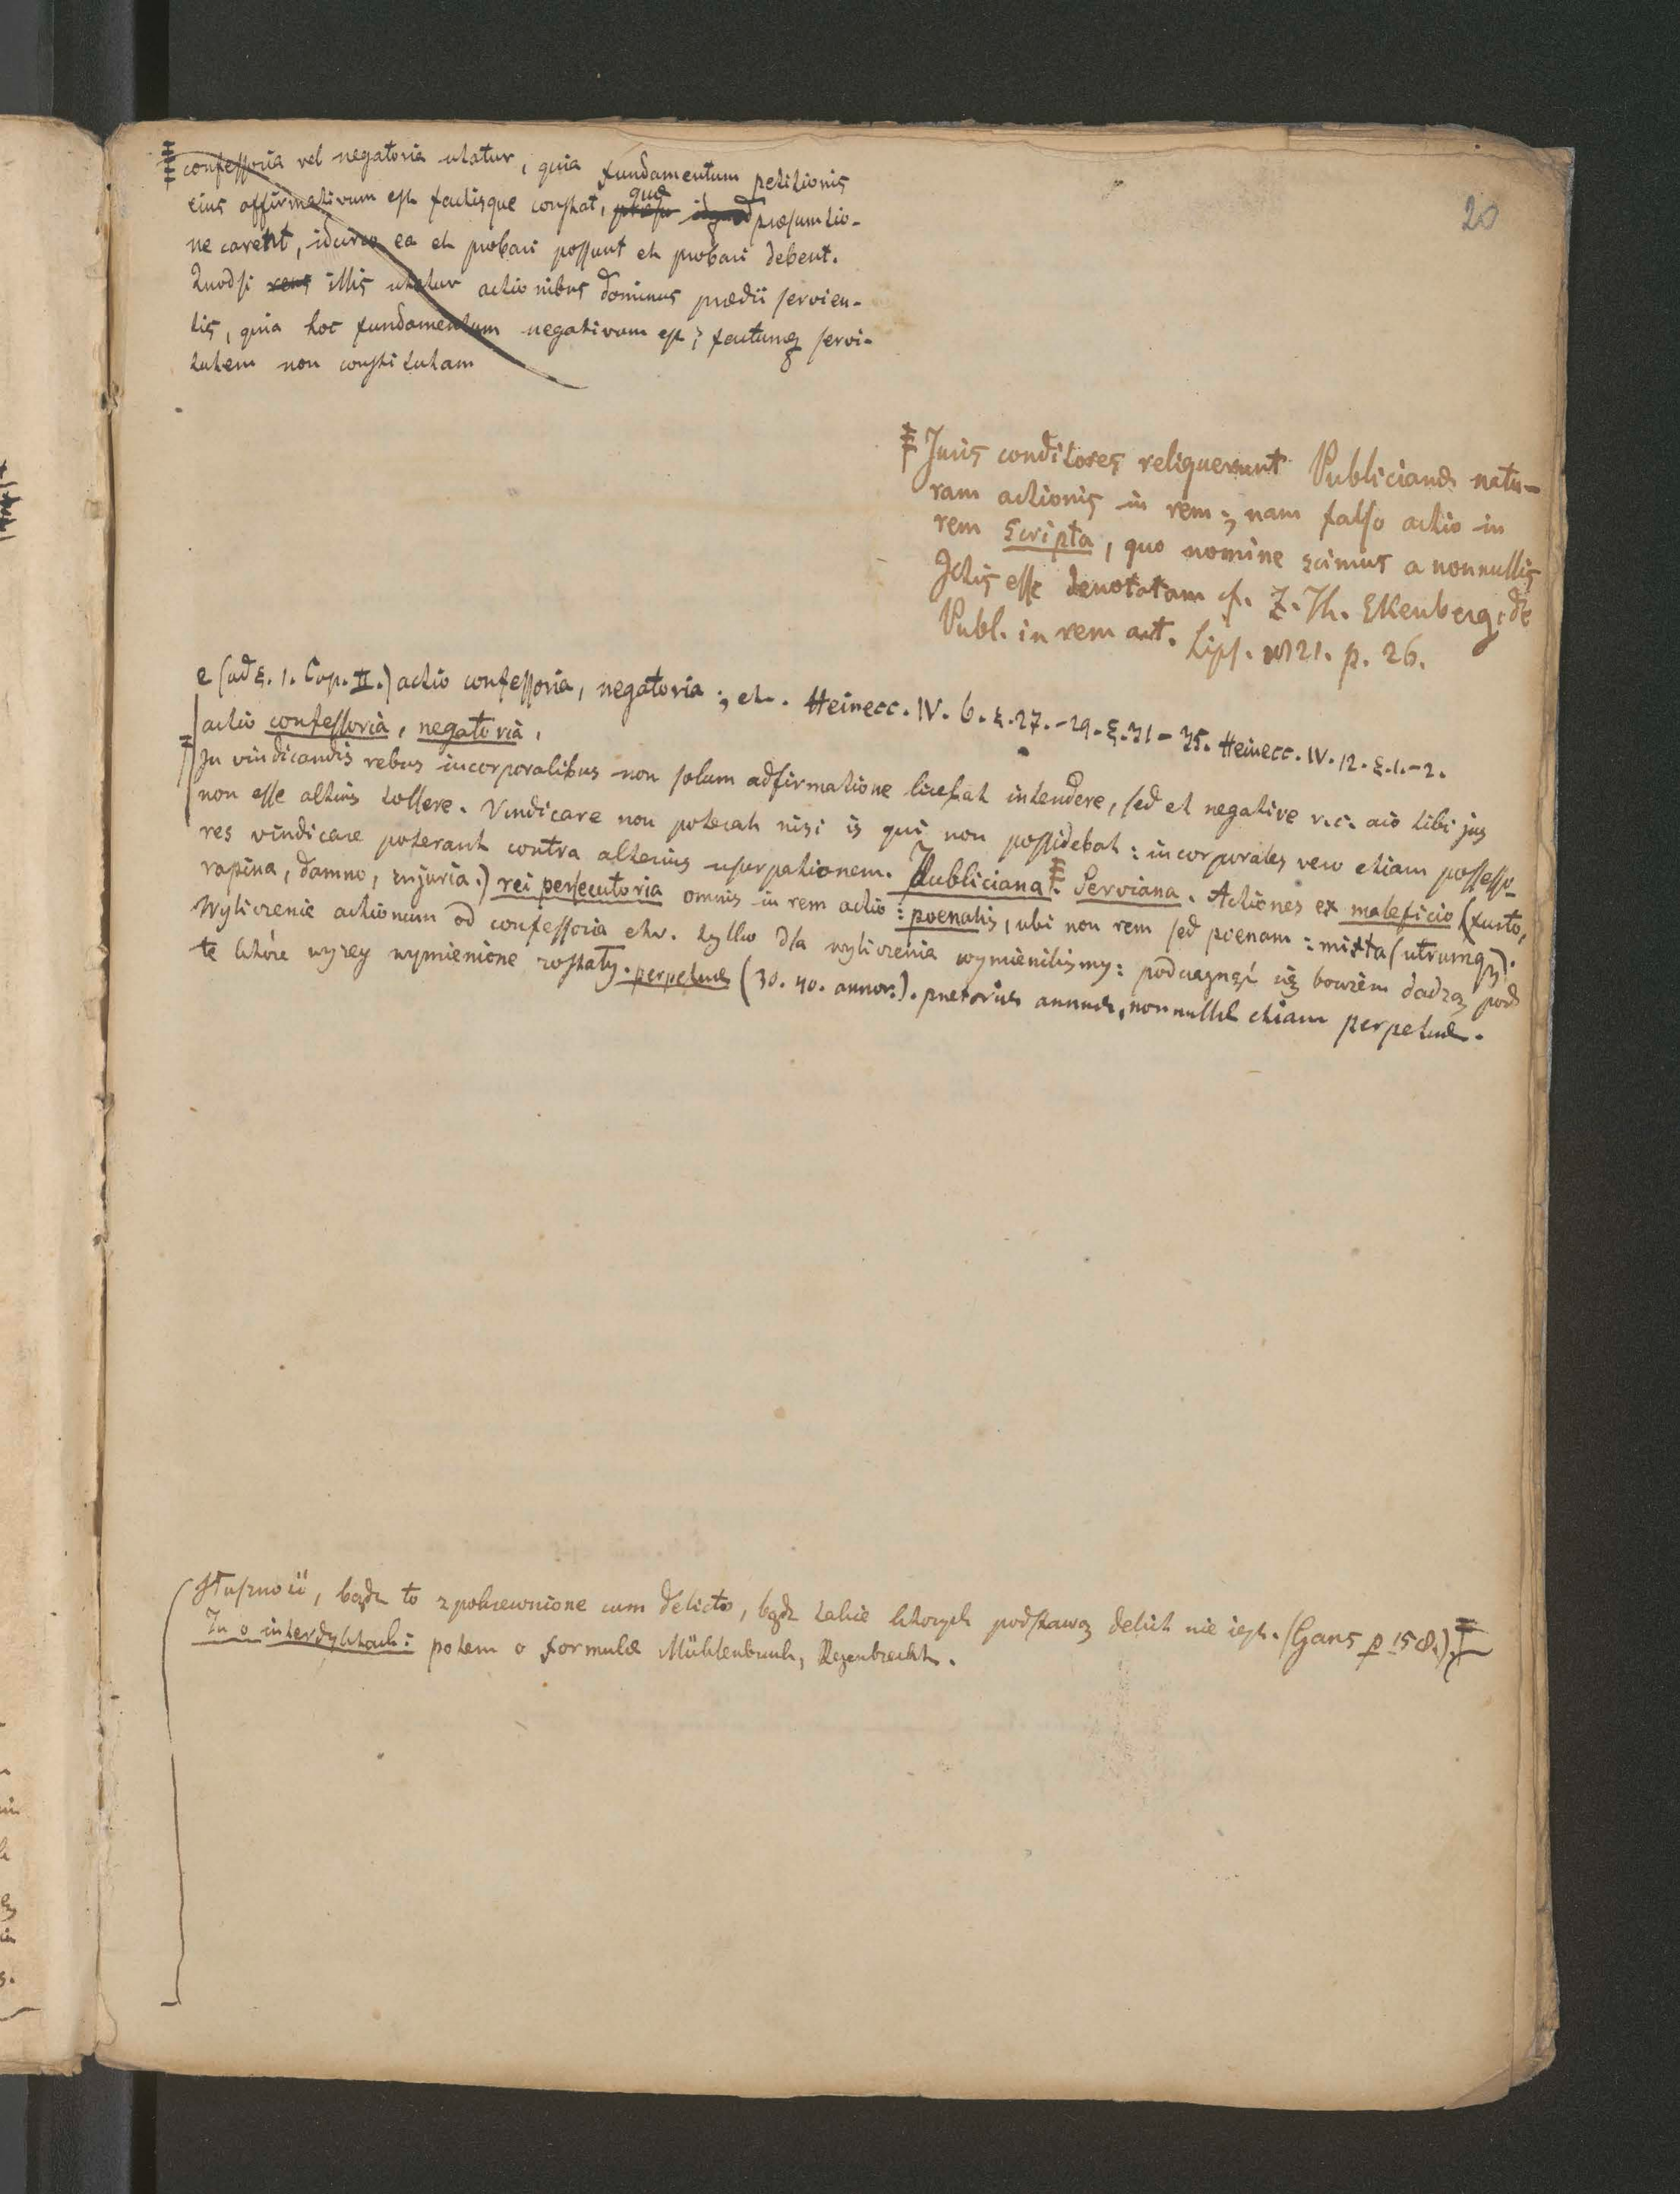 20
confessoria vel negatoria utatur, quia fundamentum petitionis
eius affirmativum est factisque constat, quae praesumtio-
ne carent, idcirco ea et probari possunt et probari debent.
Quodsi reus illis utatur actionibus dominus praedii servien-
tis, quia hoc fundamentum negativum est; factumq servi-
tutem non constitutam
Juris conditores reliquerunt Publicianæ natu-
ram actionis in rem; nam falso actio in
rem scripta, quo nomine scimus a nonnullis
Jctis esse denotatam cf. Z. Th. Ekenberg. de
Publ. in rem act. Lips. 1821. p. 26.
e (ad §. 1. Cap. II.) actio confessoria, negatoria; etc. Heinecc. IV. 6. §. 27.-29. §. 31-35. Heinecc. IV. 12. §. 1.-2.
actio confessoria, negatoria,
In vindicandis rebus incorporalibus non solum adfirmatione licebat intendere, sed et negative v.c. aio tibi jus
non esse altius tollere. Vindicare non poterat nisi is qui non possidebat: incorporales vero etiam possesso-
res vindicare poterant contra alterius usurpationem. Publiciana. Serviana. Actiones ex maleficio (furto,
rapina, damno, injuria.) rei persecutoria omnis in rem actio: poenalis, ubi non rem sed poenam: mixta (utrumq).
Wyliczenie actionum od confessoria etc. tylko dla wyliczenia wymienilismy: podciągnąć się bowiem dadzą pod
te które wyzey wymienione zostały. perpetuæ (30. 40. annor.). prætoriæ annuæ, nonnullæ etiam perpetuæ.
Słuszności, bądz to zpokrewnione cum delicto, bądz takie których podstawą delict nie iest. (Gans p 158.)
Tu o interdyktach: potem o formulæ Mühlenbruch, Regenbrecht.